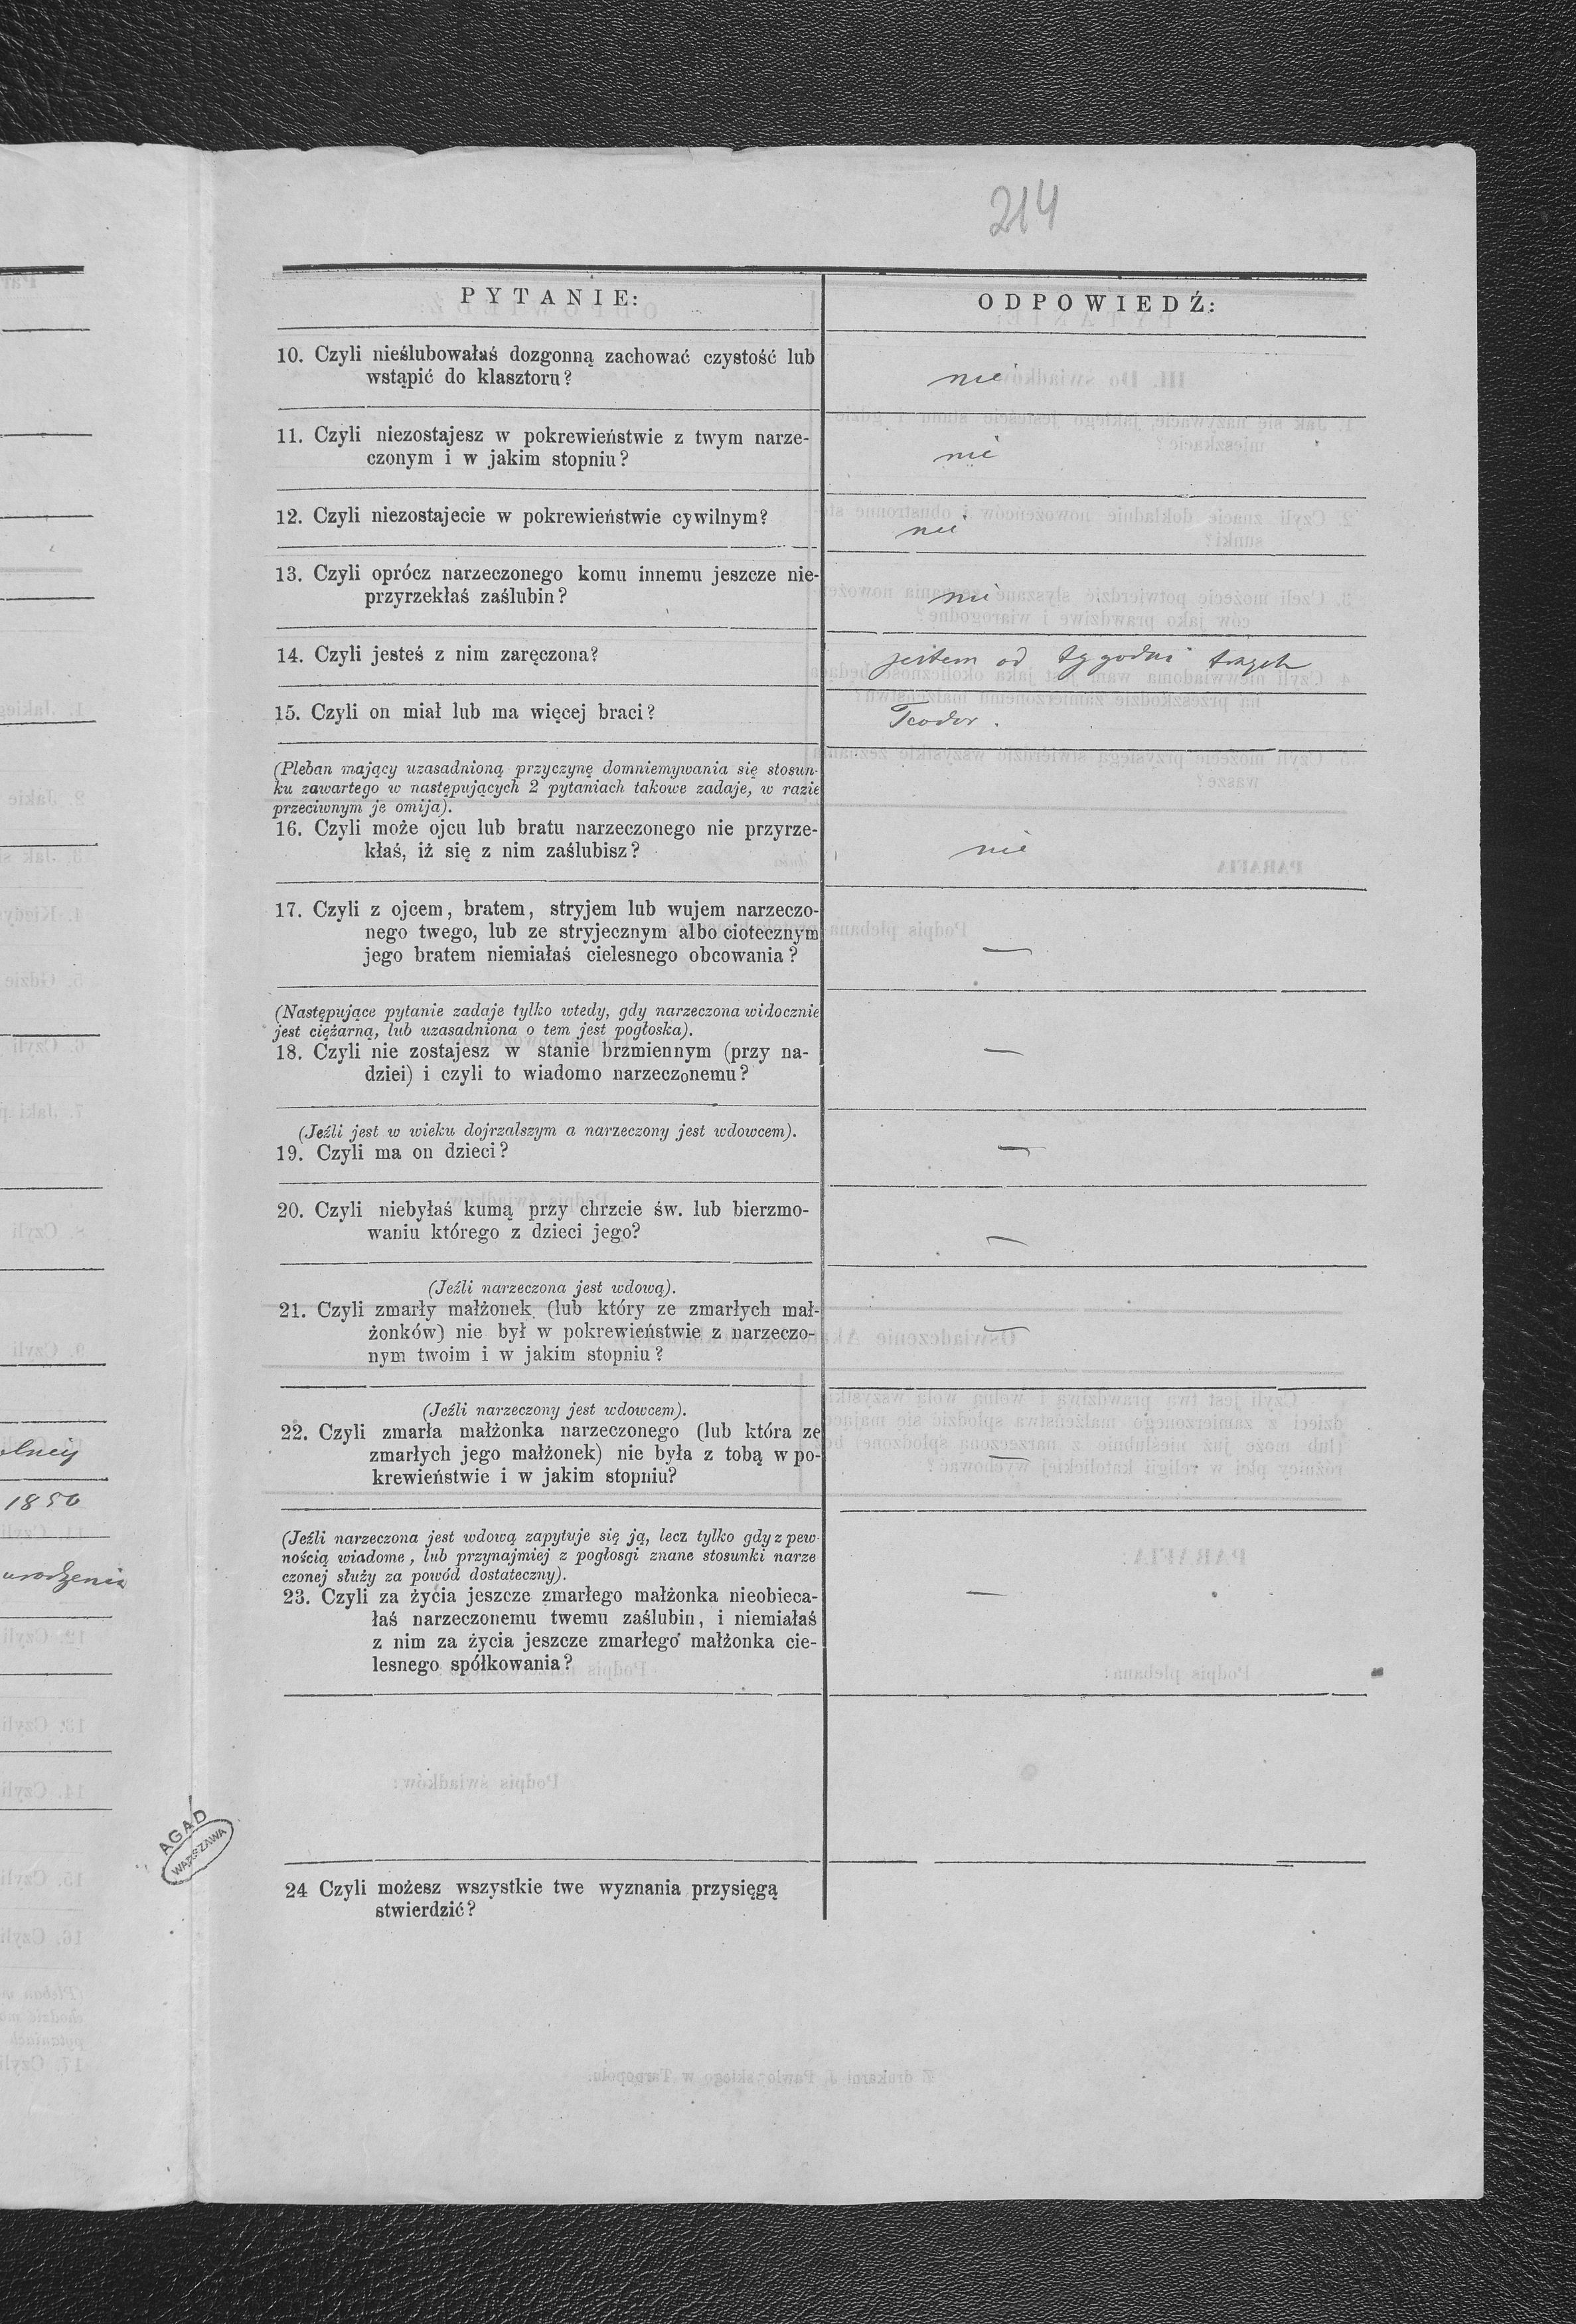 214
PYTANIE:
ODPOWIEDŹ:
10. Czyli nieślubowałaś dozgonną zachować czystość lub
wstąpić do klasztoru?
nie
11. Czyli niezostajesz w pokrewieństwie z twym narze-
czonym i w jakim stopniu?
nie
12. Czyli niezostajecie w pokrewieństwie cywilnym?
nie
13. Czyli oprócz narzeczonego komu innemu jeszcze nie-
przyrzekłaś zaślubin?
nie
14. Czyli jesteś z nim zaręczona?
jestem od tygodni trzech
15. Czyli on miał lub ma więcej braci?
Teodor.
(Pleban mający uzasadnioną przyczynę domniemywania się stosun-
ku zawartego w następujących 2 pytaniach takowe zadaje, w razie
przeciwnym je omija).
16. Czyli może ojcu lub bratu narzeczonego nie przyrze-
kłaś, iż się z nim zaślubisz?
nie
17. Czyli z ojcem, bratem, stryjem lub wujem narzeczo-
nego twego, lub ze stryjecznym albo ciotecznym
jego bratem niemiałaś cielesnego obcowania?
—
(Następujące pytanie zadaje tylko wtedy, gdy narzeczona widocznie
jest ciężarną, lub uzasadniona o tem jest pogłoska).
18. Czyli nie zostajesz w stanie brzmiennym (przy na-
dziei) i czyli to wiadomo narzeczonemu?
—
(Jeźli jest w wieku dojrzalszym a narzeczony jest wdowcem).
19. Czyli ma on dzieci?
—
20. Czyli niebyłaś kumą przy chrzcie św. lub bierzmo-
waniu którego z dzieci jego?
—
(Jeźli narzeczona jest wdową).
21. Czyli zmarły małżonek (lub który ze zmarłych mał-
żonków) nie był w pokrewieństwie z narzeczo-
nym twoim i w jakim stopniu?
—
(Jeźli narzeczony jest wdowcem).
22. Czyli zmarła małżonka narzeczonego (lub która ze
zmarłych jego małżonek) nie była z tobą w po-
krewieństwie i w jakim stopniu?
—
(Jeźli narzeczona jest wdową zapytuje się ją, lecz tylko gdy z pew-
nością wiadome, lub przynajmiej z pogłosgi znane stosunki narze
czonej służy za powód dostateczny).
23. Czyli za życia jeszcze zmarłego małżonka nieobieca-
łaś narzeczonemu twemu zaślubin, i niemiałaś
z nim za życia jeszcze zmarłego małżonka cie-
lesnego spółkowania?
—
24 Czyli możesz wszystkie twe wyznania przysięgą
stwierdzić?
1850
urodzenia
AGAD
WARSZAWA